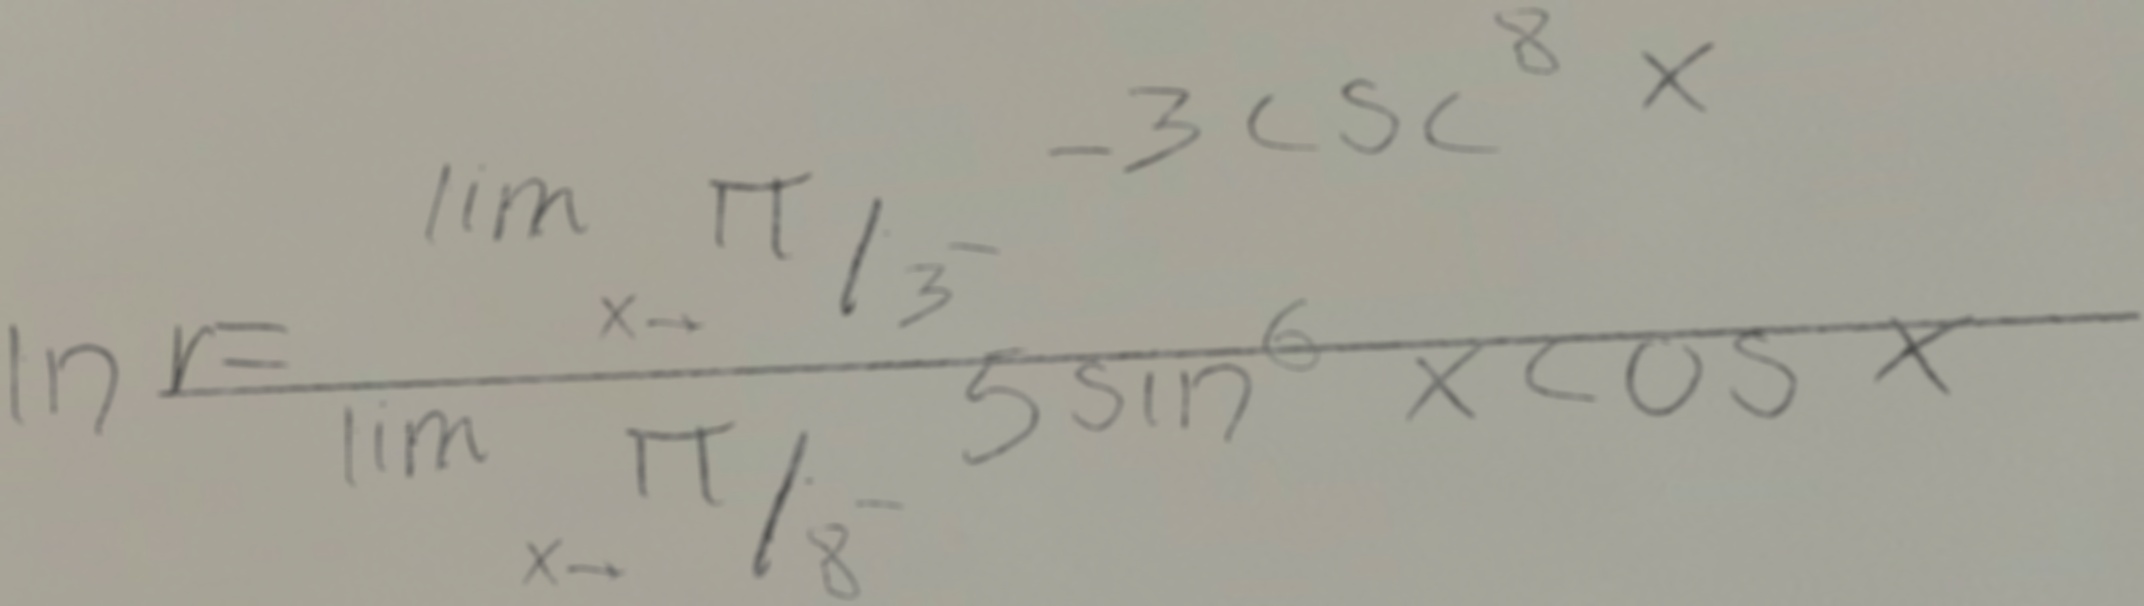 ln r = lim x→ π/3⁻ -3 csc⁸ x
lim x→ π/8⁻ 5 sin⁶ x cos x